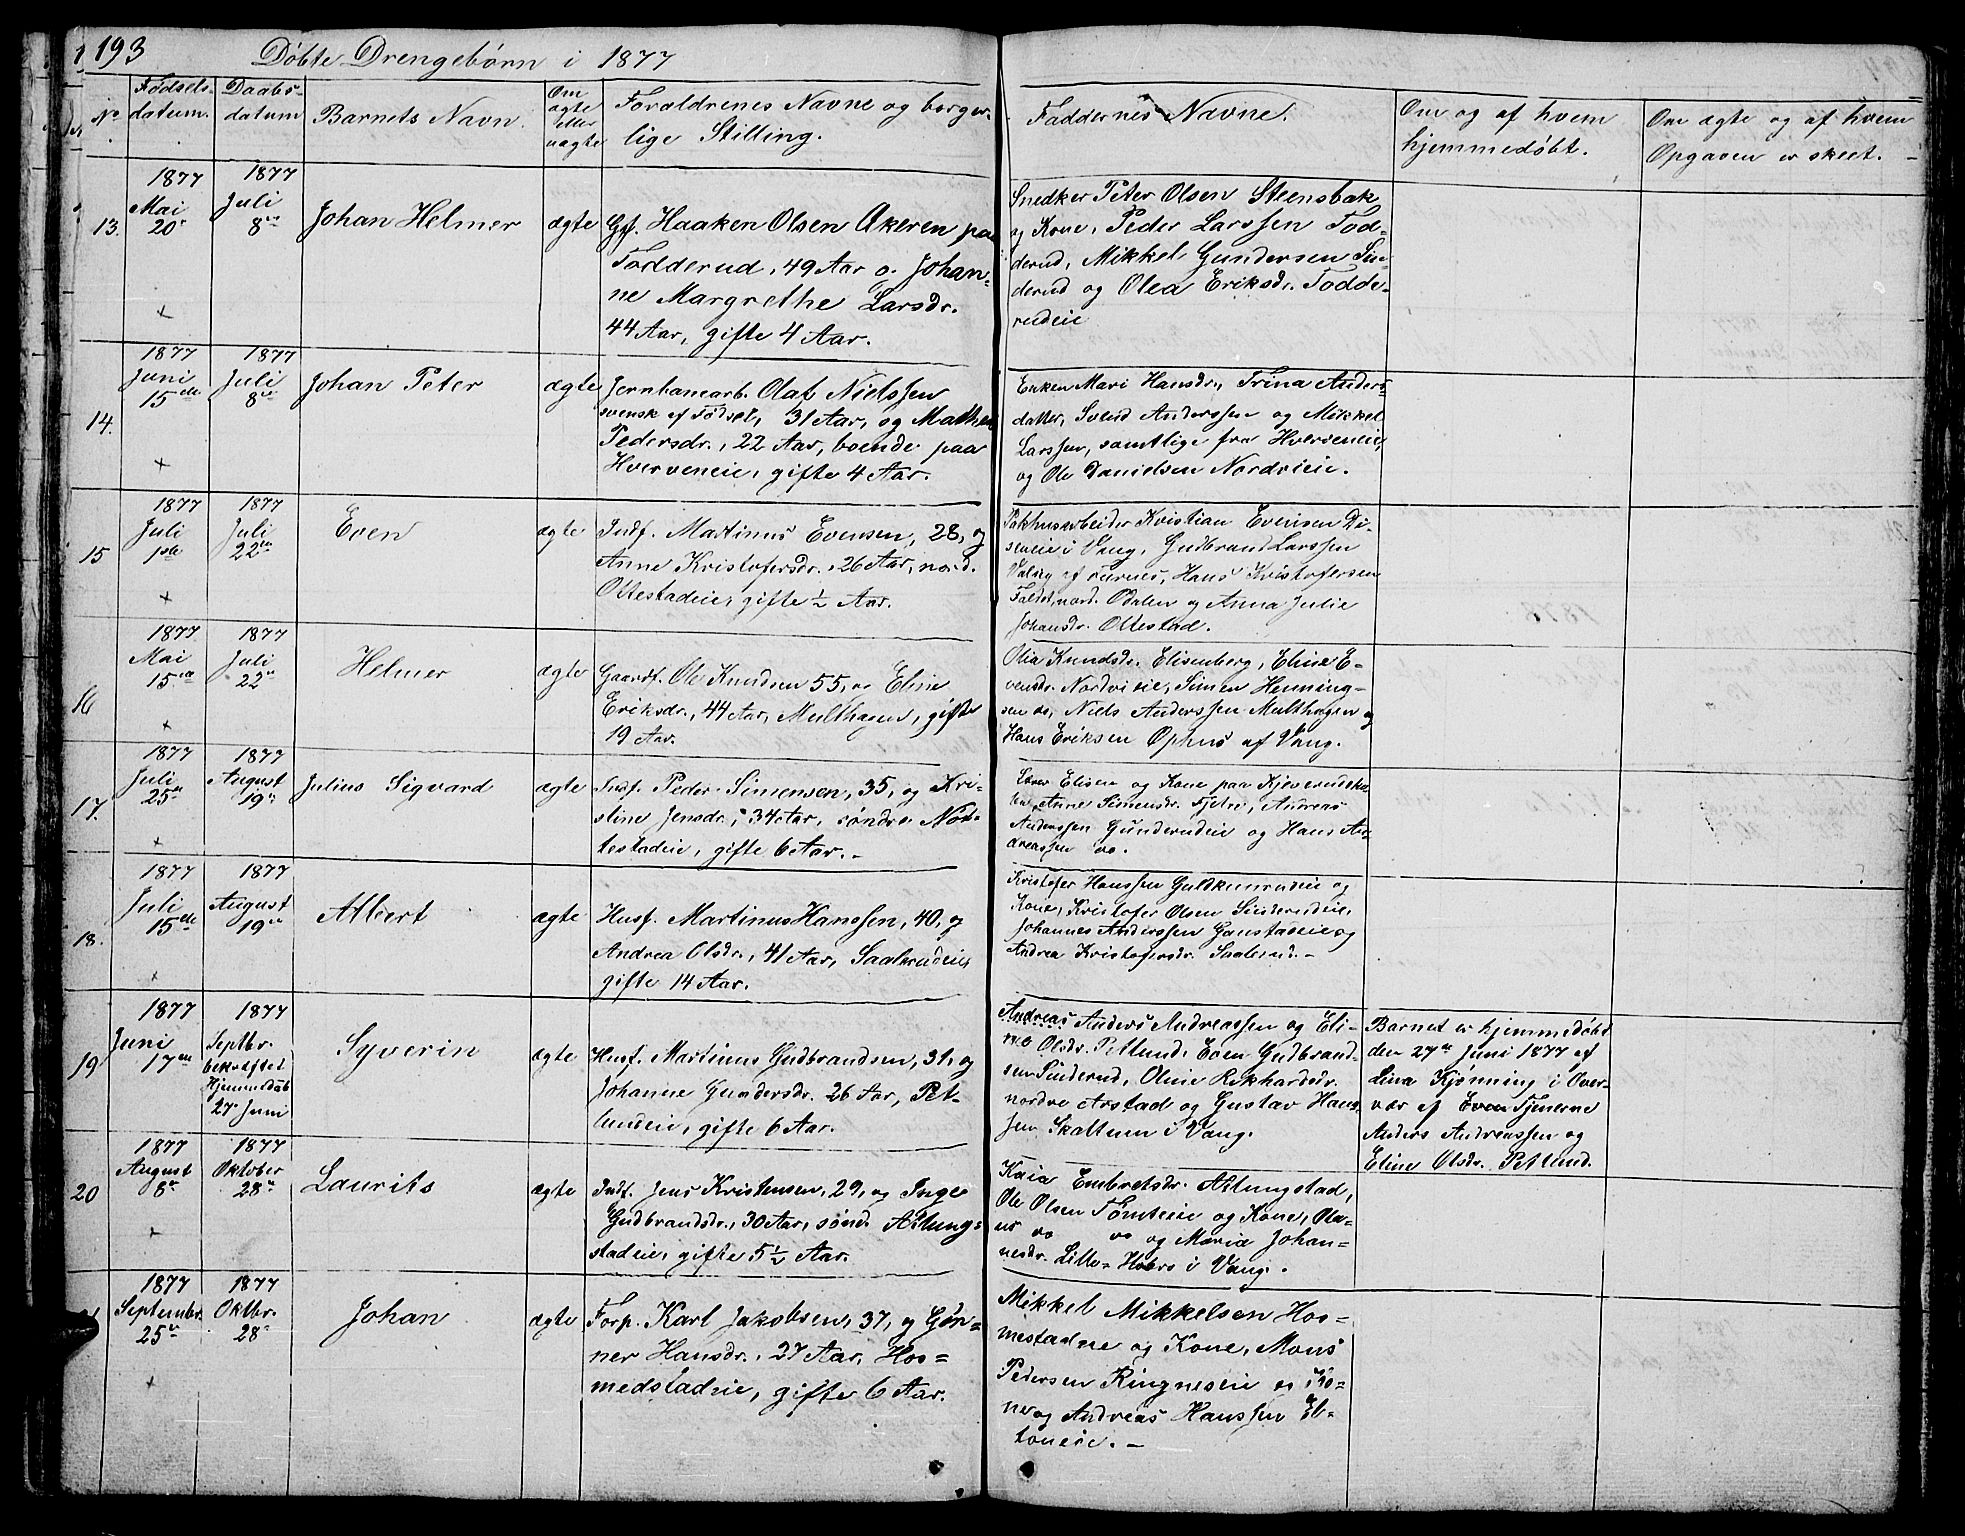 193
Døbte Drengebørn i 1877
No
Fødsels-
datum.
Daabs-
datum
Barnets Navn.
Om
ægte
eller
uægte
Forældrenes Navne og borger-
lige Stilling.
Faddernes Navne.
Om og af hvem
hjemmedøbt.
Om ægte og af hvem
Opgaven er skeet. -
13.
1877
Mai
20de
1877
Juli
8de
Johan Helmer
ægte
Gf. Haaken Olsen Akeren paa
Fodderud, 49 Aar og Johan-
ne Margrethe Larsdr.
44 Aar, gifte 4 Aar.
Snedker Peter Olsen Steensbæk
og Kone, Peder Larssen Fod-
derud, Mikkel Gundersen Sin-
derud og Olea Eriksdr. Fodde-
rudeie
14.
1877
Juni
15de
1877
Juli
8de
Johan Peter
ægte
Jernbanearb. Olaf Nielssen
svensk af Fødsel, 31 Aar, og Mathea
Pedersdr., 22 Aar, boende paa
Hverveneie, gifte 4 Aar.
Enken Mari Hansdr., Trina Anders-
datter, Svend Anderssen og Mikkel
Larssen, samtlige fra Hverveneie,
og Ole Danielsen Nordvieie.
15
1877
Juli
1ste
1877
Juli
22de
Even
ægte
Indf. Martinus Evensen, 28, og
Anne Kristofersdr., 26 Aar, nord.
Ottestadeie, gifte ½ Aar.
Pakhusarbeider Kristian Evensen Di-
seneie i Vang, Gudbrand Larssen
Valsig af Furnes, Hans Kristofersen
Faldet, nord. Odalen og Anna Julie
Johansdr. Ottestad.
16
1877
Mai
15de
1877
Juli
22de
Helmer
ægte
Gaardf. Ole Knudsen 55, og Eline
Eriksdr., 44 Aar, Multhagen, gifte
19 Aar.
Olia Knudsdr. Elisenberg, Eline E-
vensdr. Nordvieie, Simen Henning-
sen do, Niels Anderssen Multhagen og
Hans Eriksen Ophus af Vang.
17.
1877
Juli
25de
1877
August
19de
Julius Sigvard
ægte
Indf. Peder Simensen, 35, og Kri-
stine Jensdr., 34 Aar, søndre Not-
testadeie, gifte 6 Aar. -
Elisen og Kone paa
Anne Simensdr. Fjetre, Andreas
Anderssen Gunderudeie og Hans An-
dreassen do.
18.
1877
Juli
15de
1877
August
19de
Albert
ægte
Husf. Martinus Hanssen, 40, og
Andrea Olsdr., 41 Aar, Saalerudeie
gifte 14 Aar.
Kristofer Hanssen Guldkunrudeie og
Kone, Kristofer Olsen Sinderudeie,
Johannes Anderssen Gaustadeie og
Andrea Kristofersdr. Saalerud. -
19
1877
Juni
17de
1877
Septbr.
bekræftet
Hjemmedaab
27de Juni
Syverin
ægte
Husf. Martinus Gudbrandsen, 31, og
Johanne Gundersdr. 26 Aar, Pet-
lundeie, gifte 6 Aar.
Andreas Anders Andreassen og Eli-
ne Olsdr. Petlund, Even Gudbrand-
sen Sinderud, Oline Rikhardsdr.
nordre Arstad og Gustav Hans-
sen Skattum i Vang.
Barnet er hjemmedøbt
den 27de Juni 1877 af
Lina Kjønning i Over-
vær af Even Tjenerne
Anders Andreassen og
Eline Olsdr. Petlund.
20
1877
August
8de
1877
Oktober
28de
Laurits
ægte
Indf. Jens Kristensen, 29, og Inge
Gudbrandsdr., 30 Aar, sønd. Atlung-
stadeie, gifte 5½ Aar.
Kaia Embretsdr. Atlungstad,
Ole Olsen Tomteeie og Kone, Ola-
us do do og Maria Johan-
nesdr. Lille-Hobro i Vang.
1877
Septembr.
25de
1877
Oktbr.
28de
Johan
ægte
Forp. Karl Jakobsen, 37, og Gøn-
ner Hansdr., 27 Aar, Hos-
medstadeie, gifte 6 Aar.
Mikkel Mikkelsen Hos-
mestadne og Kone, Mons
Pedersen Ringneseie og Ko-
ne og Andreas Hanssen Eb-
toneie. -